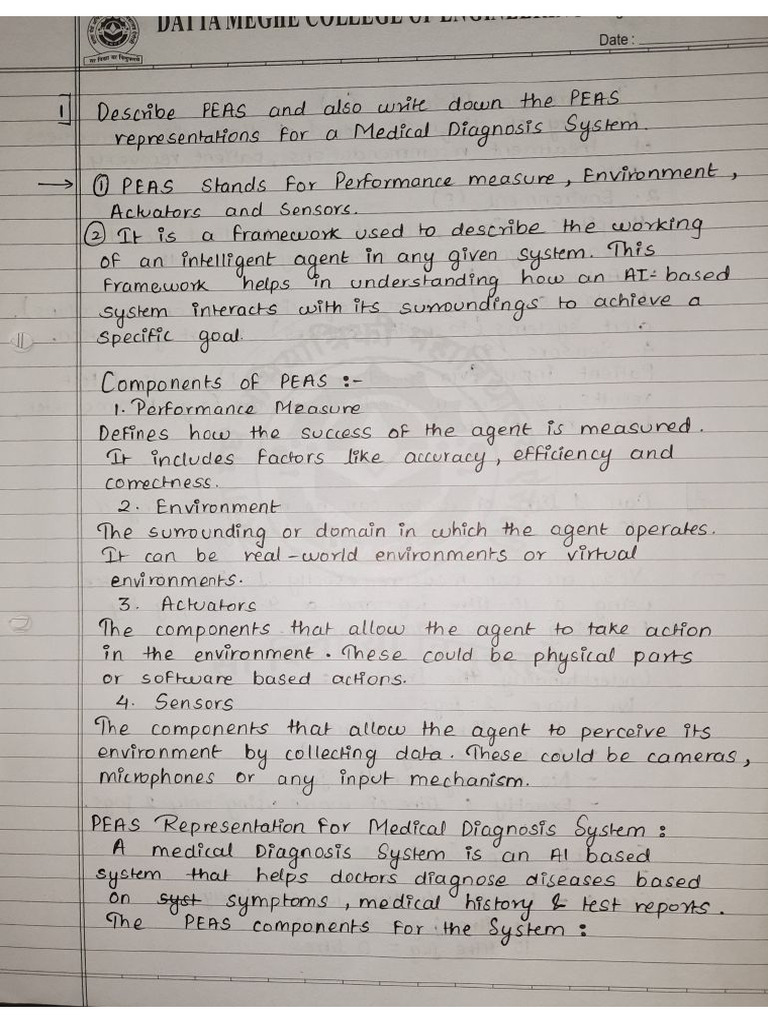 DATTA MEGHE COLLEGE OF
Date :
1] Describe PEAS and also write down the PEAS
representations for a Medical Diagnosis System.
→ ① PEAS stands for Performance measure, Environment,
Actuators and Sensors.
② It is a framework used to describe the working
of an intelligent agent in any given system. This
framework helps in understanding how an AI-based
system interacts with its surroundings to achieve a
specific goal.
Components of PEAS :-
1. Performance Measure
Defines how the success of the agent is measured.
It includes factors like accuracy, efficiency and
correctness.
2. Environment
The surrounding or domain in which the agent operates.
It can be real-world environments or virtual
environments.
3. Actuators
The components that allow the agent to take action
in the environment. These could be physical parts
or software based actions.
4. Sensors
The components that allow the agent to perceive its
environment by collecting data. These could be cameras,
microphones or any input mechanism.
PEAS Representation for Medical Diagnosis System :
A medical Diagnosis System is an AI based
system that helps doctors diagnose diseases based
on syst symptoms, medical history & test reports.
The PEAS components for the System :